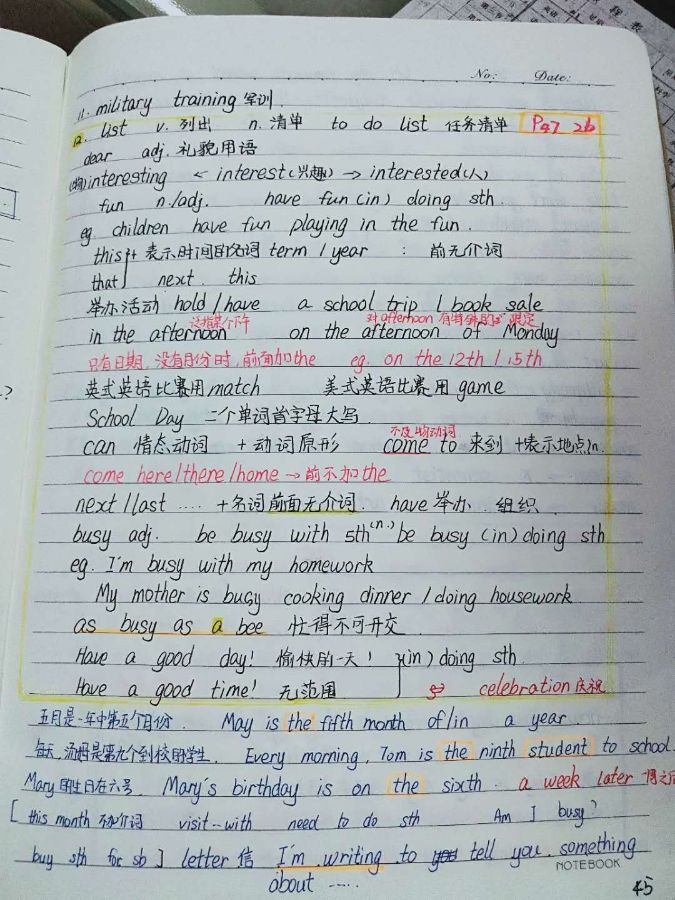 No: Date:
11. military training 军训.
12. list v. 列出 n. 清单 to do list 任务清单 P47 2b
dear adj. 礼貌用语
(物)interesting ← interest(兴趣) → interested(人)
fun n./adj. have fun (in) doing sth.
eg. children have fun playing in the fun.
this + 表示时间的名词 term / year : 前无介词
that next. this
举办活动 hold / have a school trip / book sale
没指某个下午 对afternoon有特殊的 限定
in the afternoon on the afternoon of Monday
只有日期,没有月份时,前面加the eg. on the 12th / 15th
英式英语比赛用match 美式英语比赛用game
School Day 二个单词首字母大写.
不及物动词
can 情态动词 + 动词原形 come to 来到 +表示地点n.
come here/there/home → 前不加the
next / last .... +名词前面无介词. have 举办. 组织
busy adj. be busy with sth(n.) be busy (in) doing sth
eg. I'm busy with my homework
My mother is busy cooking dinner / doing housework
as busy as a bee 忙得不可开交.
Have a good day! 愉快的一天! (in) doing sth.
Have a good time! 无范围 celebration 庆祝
五月是一年中第五个月份. May is the fifth month of/in a year
每天,汤姆是第九个到校的学生. Every morning, Tom is the ninth student to school.
Mary的生日在六号. Mary's birthday is on the sixth. a week later 一周之后
[ this month 不加介词 visit--with need to do sth Am I busy?
buy sth for sb ] letter 信 I'm writing to tell you something
NOTEBOOK
about .....
45